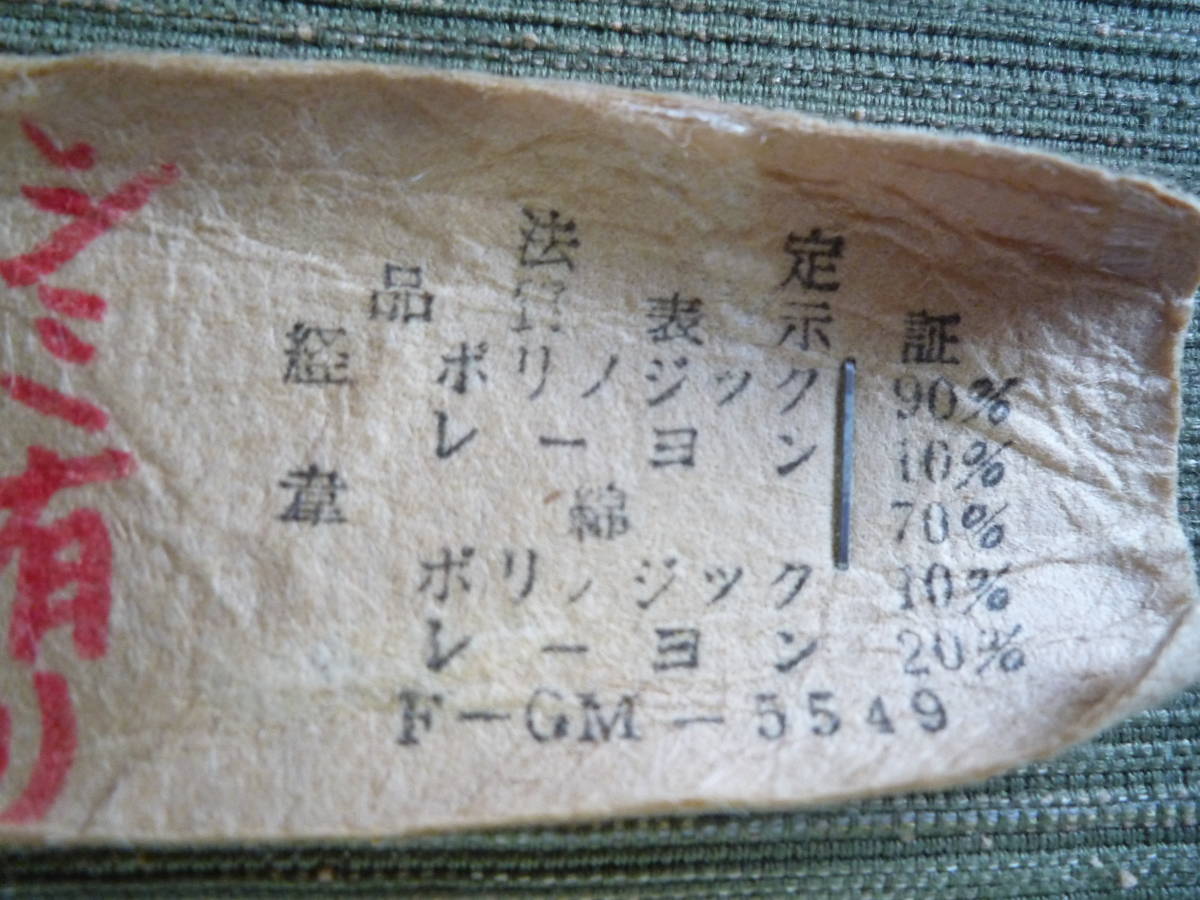 法定
品質表示証
経 ポリノジック 90%
レーヨン 10%
韋 綿 70%
ポリノジック 10%
レーヨン 20%
F-GM-5549